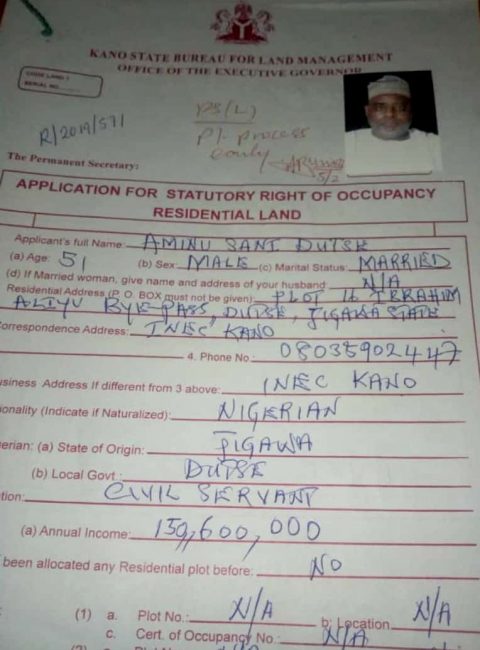 KANO STATE BUREAU FOR LAND MANAGEMENT
OFFICE OF THE EXECUTIVE GOVERNOR
CODE LAND 1
SERIAL NO.
R/2019/571
PS(L)
Pl. process
early
5/2
The Permanent Secretary:
APPLICATION FOR STATUTORY RIGHT OF OCCUPANCY
RESIDENTIAL LAND
Applicant's full Name: AMINU SANI DUTSE
(a) Age: 51 (b) Sex: MALE (c) Marital Status: MARRIED
(d) If Married woman, give name and address of your husband: N/A
Residential Address (P. O. BOX must not be given): PLOT 16 IBRAHIM
ALIYU BYE-PASS, DUTSE, JIGAWA STATE
orrespondence Address: INEC KANO
4. Phone No: 08035902447
usiness Address If different from 3 above: INEC KANO
ionality (Indicate if Naturalized): NIGERIAN
erian: (a) State of Origin: JIGAWA
(b) Local Govt.: DUTSE
tion: CIVIL SERVANT
(a) Annual Income: 150,600,000
been allocated any Residential plot before: NO
(1) a. Plot No.: N/A b: Location N/A
c. Cert. of Occupancy No.: N/A